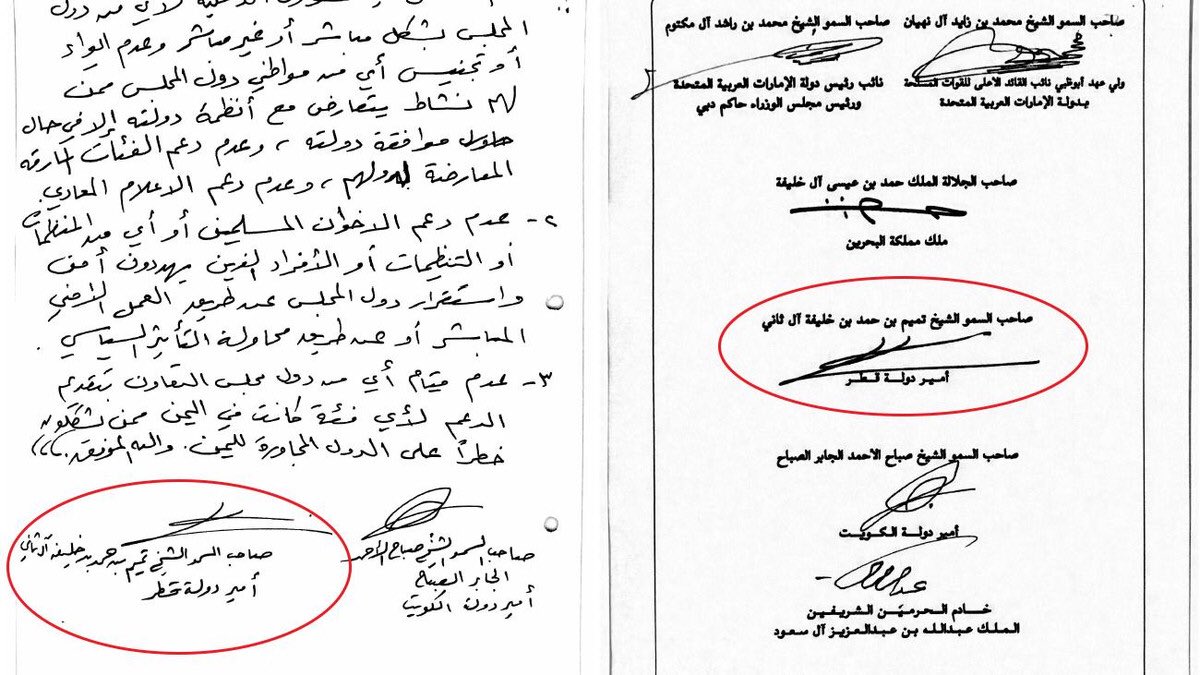 صاحب السمو الشيخ محمد بن زايد آل نهيان
ولي عهد أبوظبي نائب القائد الاعلى للقوات المسلحة
بدولة الإمارات العربية المتحدة
صاحب السمو الشيخ محمد بن راشد آل مكتوم
نائب رئيس دولة الإمارات العربية المتحدة
ورئيس مجلس الوزراء حاكم دبي
صاحب الجلالة الملك حمد بن عيسى آل خليفة
ملك مملكة البحرين
صاحب السمو الشيخ تميم بن حمد بن خليفة آل ثاني
أمير دولة قطر
صاحب السمو الشيخ صباح الأحمد الجابر الصباح
أمير دولة الكويت
خادم الحرمين الشريفين
الملك عبدالله بن عبدالعزيز آل سعود
لأي من دول
المجلس بشكل مباشر أو غير مباشر وعدم ايواء
أو تجنيس أي من مواطني دول المجلس ممن
لهم نشاط يتعارض مع أنظمة دولته إلا في حال
موافقة دولته ، وعدم دعم الفئات المارقه
المعارضة لدولهم ، وعدم دعم الاعلام المعادي.
٢- عدم دعم الاخوان المسلمين أو أي من المنظمات
أو التنظيمات أو الأفراد الذين يهددون أمن
واستقرار دول المجلس عن طريق العمل الأمني
المباشر أو عن طريق محاولة التأثير السياسي .
٣- عدم قيام أي من دول مجلس التعاون بتقديم
الدعم لأي فئة كانت في اليمن ممن يشكلون
خطراً على الدول المجاورة لليمن. والله الموفق،،،
صاحب السمو الشيخ صباح الأحمد
الجابر الصباح
أمير دولة الكويت
صاحب السمو الشيخ تميم بن حمد بن خليفة آل ثاني
أمير دولة قطر